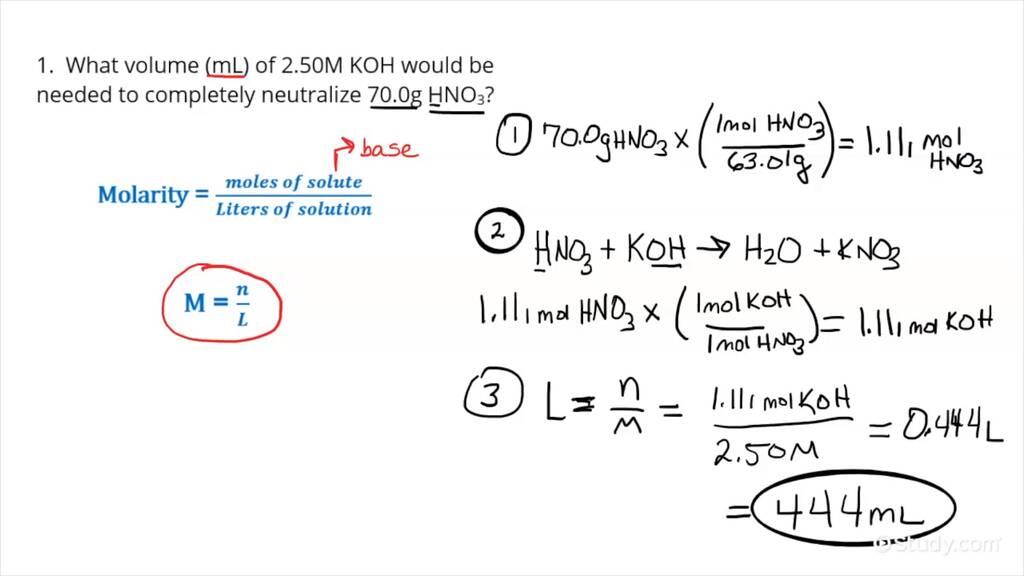 1. What volume (mL) of 2.50M KOH would be
needed to completely neutralize 70.0g HNO₃?
base
Molarity = moles of solute / Liters of solution
M = n / L
① 70.0g HNO₃ × (1mol HNO₃ / 63.01g) = 1.11₁ mol HNO₃
② HNO₃ + KOH → H₂O + KNO₃
1.11₁ mol HNO₃ × (1mol KOH / 1mol HNO₃) = 1.11₁ mol KOH
③ L = n / M = 1.11₁ mol KOH / 2.50M = 0.444L
= 444mL
Study.com